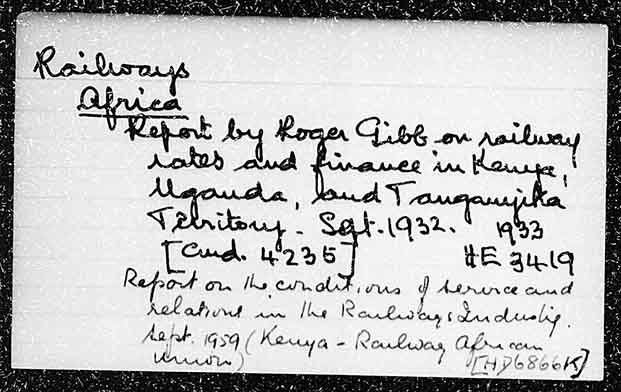 Railways
Africa
Report by Roger Gibb on railway
rates and finance in Kenya,
Uganda, and Tanganyika
Territory. Sept. 1932. 1933
[Cmd. 4235] HE 3419
Report on the conditions of service and
relations in the Railways Industry.
Sept. 1959 (Kenya - Railway African
Union) [HD6866K]